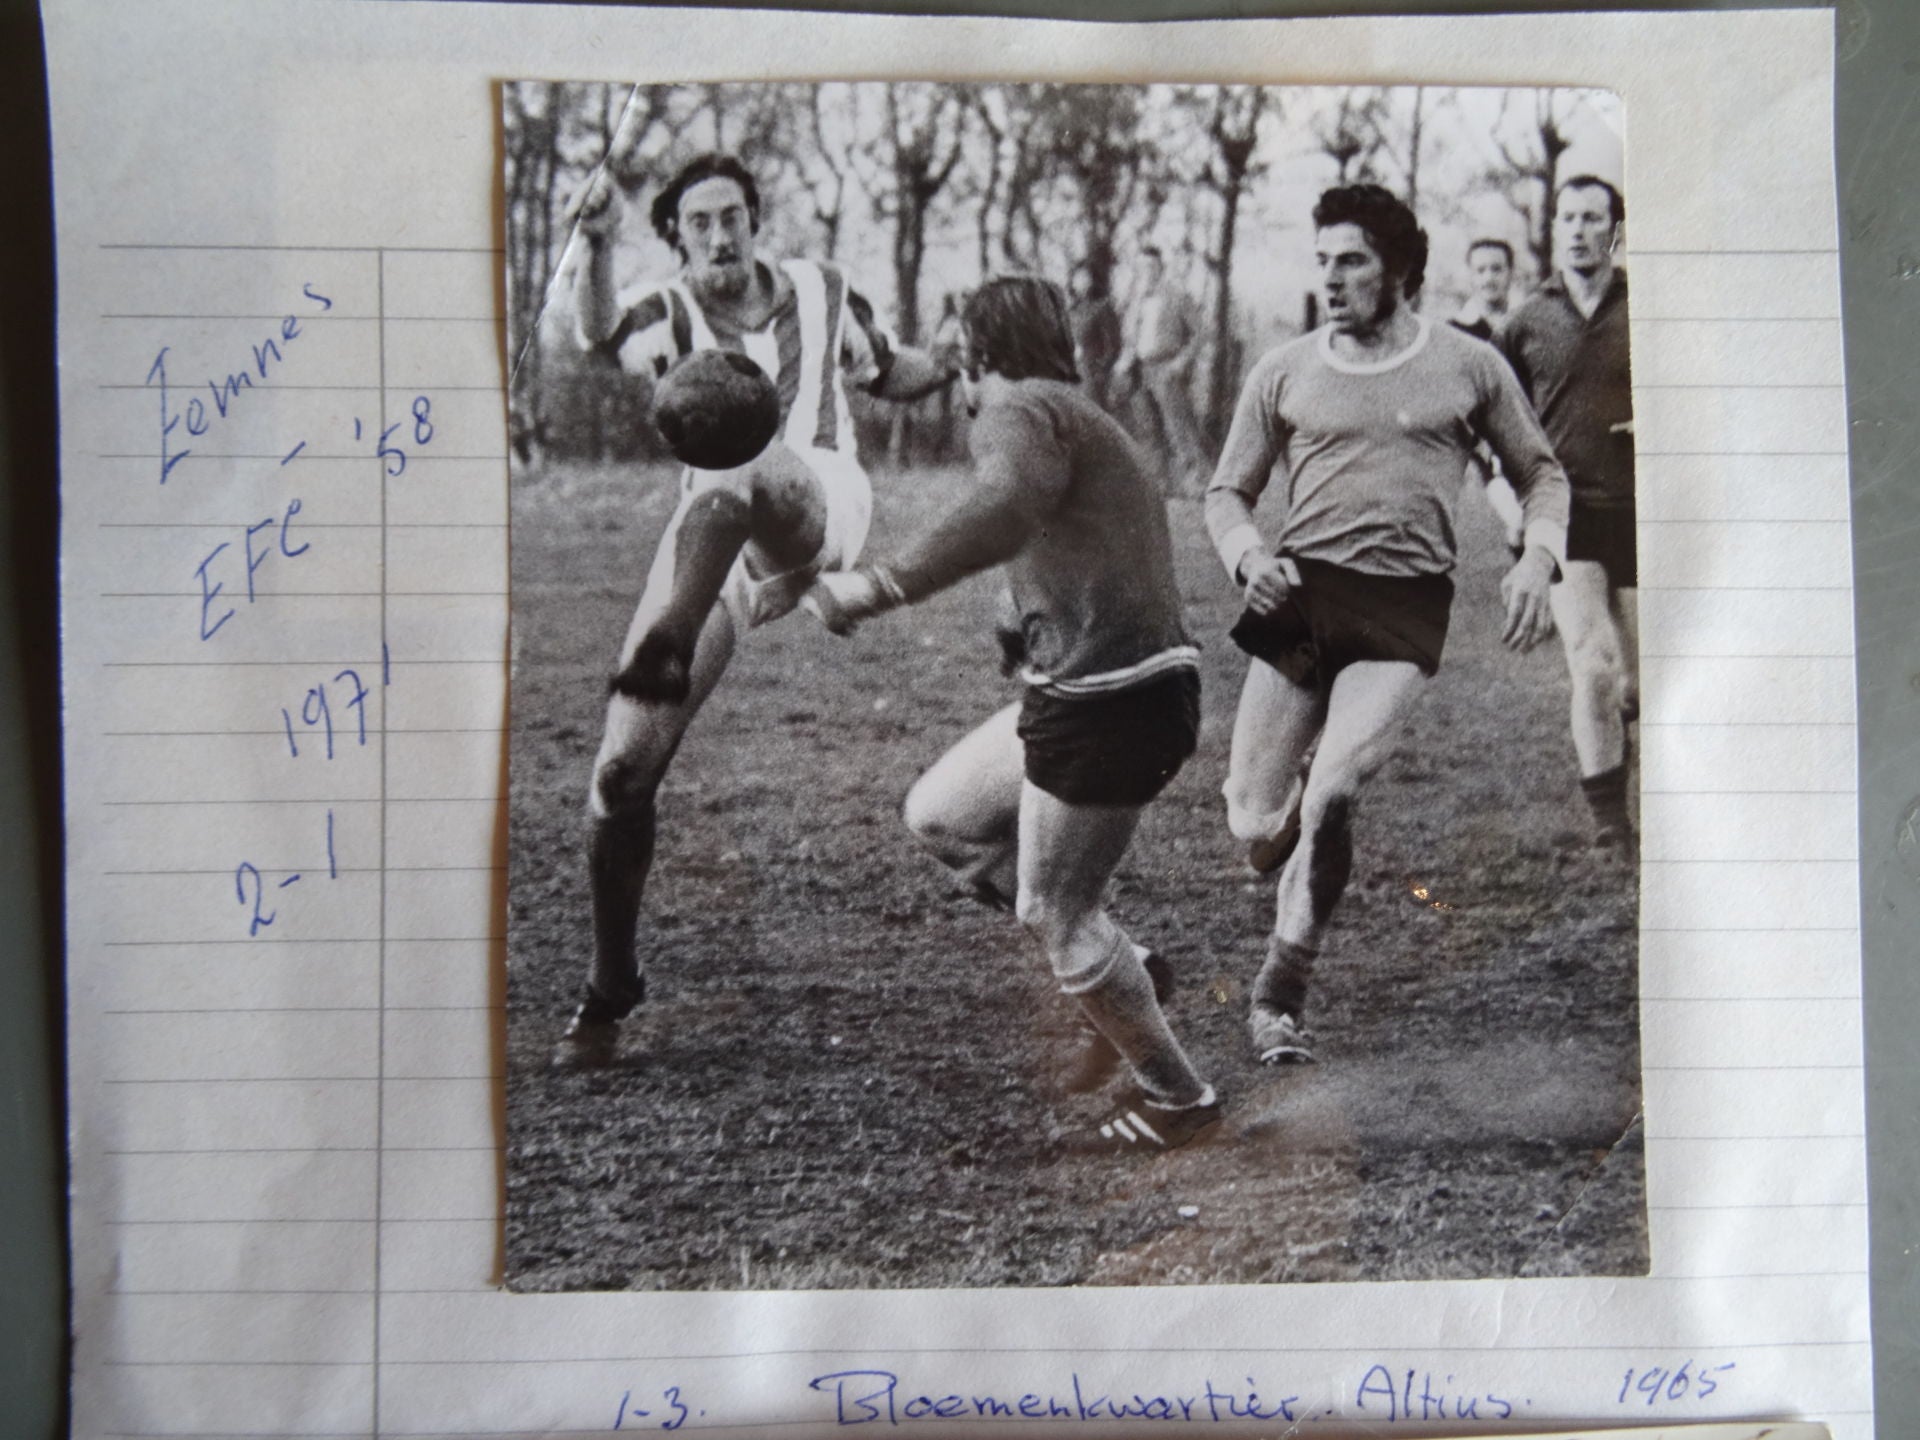 Eemnes
- '58
EFC
1971
2-1
1-3. Bloemenkwartier. Altius. 1965